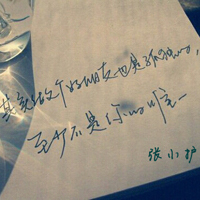 其实做个好朋友也是孤独的,
至少不是你的唯一
张小护